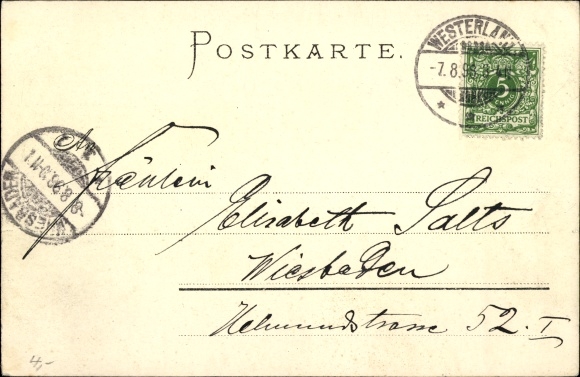 POSTKARTE.
WESTERLAND
-7.8.98.8-
5
REICHSPOST
An
Fräulein
Elisabeth Salts
Wiesbaden
Helmundstrasse 52. I
WIESBADEN
4,-